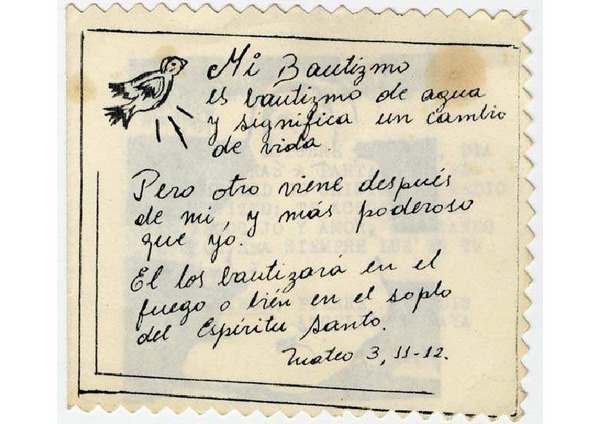 Mi Bautizmo
es bautizmo de agua
y significa un cambio
de vida.
Pero otro viene después
de mí y mas poderoso
que yo.
El los bautizará en el
fuego o bién en el soplo
del Espíritu Santo.
Mateo 3, 11-12.